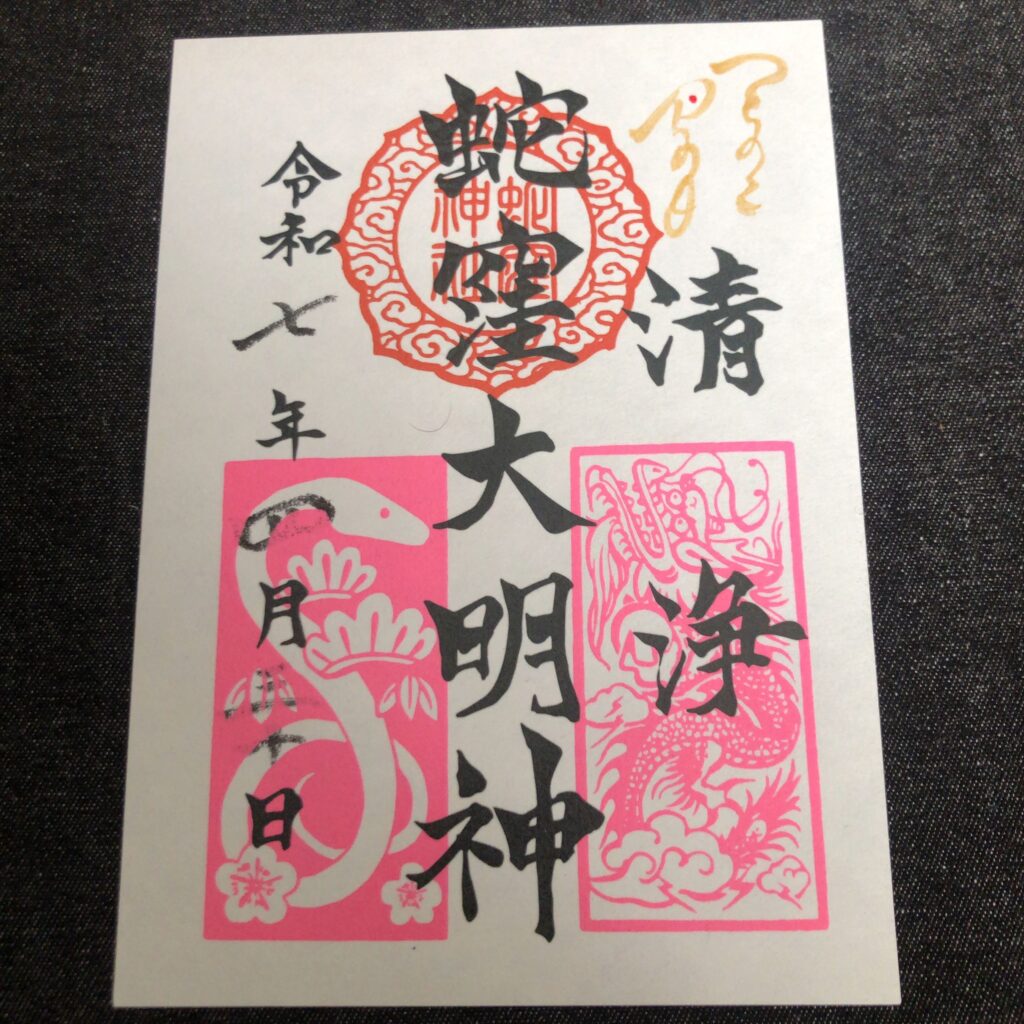 清浄
蛇窪大明神
蛇窪神社
令和七年四月三十日